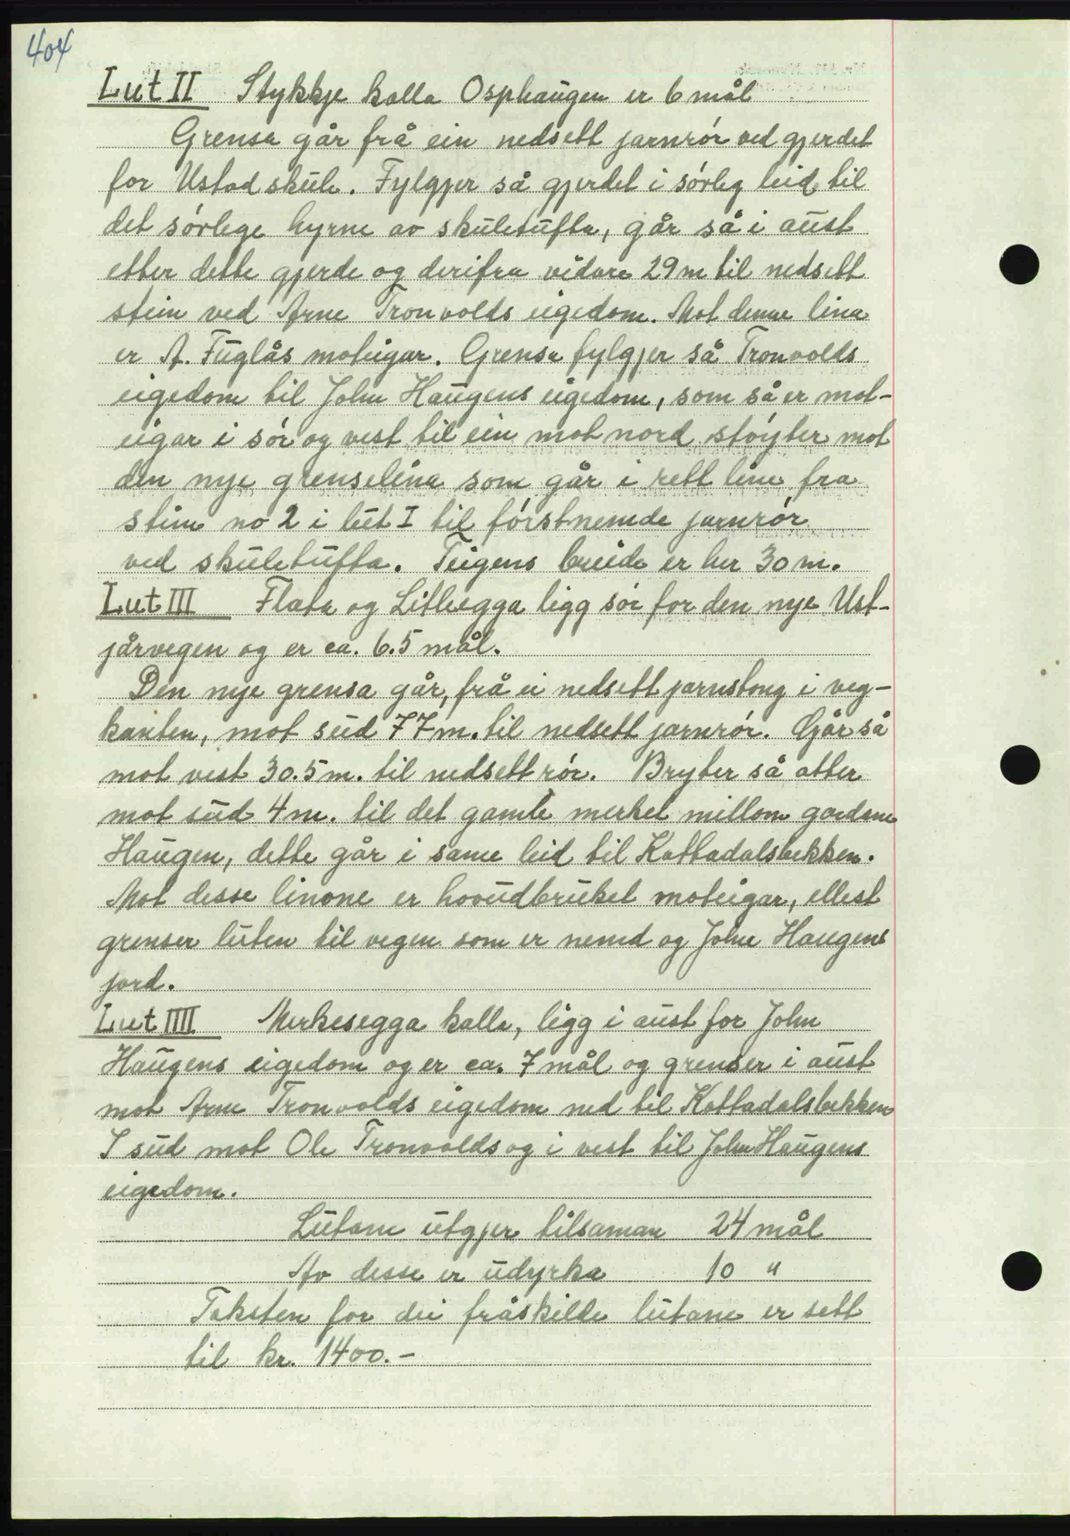 404
Lut II Stykkje kalla Osphaugen er 6 mål
Grensa går frå ein nedsett jarnrór ved gjerdet
for Ustad skule. Fylgjer så gjerdet i sórleg leid til
det sórlege hyrne av skuletufta, går så i aust
etter dette gjerde og derifra vidare 29 m til nedsett
stein ved Arne Tronvolds eigedom. Mot denne lina
er A. Fuglås moteigar. Grensa fylgjer så Tronvolds
eigedom til John Haugens eigedom, som så er mot-
eigar i sór og vest til ein mot nord stóyter mot
den nye grenselina som går i rett line fra
stein no 2 i lut I til fórstnemde jarnrór
ved skuletufta. Teigens breide er her 30 m.
Lut III Flata og Litleegga ligg sór for den nye Ust-
jårvegen og er ca. 6.5 mål.
Den nye grensa går, frå ei nedsett jarnstong i veg-
kanten, mot sud 77 m. til nedsett jarnrór. Går så
mot vest 30.5 m. til nedsett rór. Bryter så atter
mot sud 4 m. til det gamle merket millom gardane
Haugen, dette går i same leid til Kattadalsbekken.
Mot desse linone er hovudbruket moteigar, ellest
grenser luten til vegen som er nemd og John Haugens
jord.
Lut IIII Merkesegga kalla, ligg i aust for John
Haugens eigedom og er ca. 7 mål og grenser i aust
mot Arne Tronvolds eigedom ned til Kattadalsbekken
I sud mot Ole Tronvolds og i vest til John Haugens
eigedom.
Lutane utgjer tilsaman 24 mål
Av desse er udyrka 10 "
Taksten for dei fråskilde lutane er sett
til kr. 1400.-